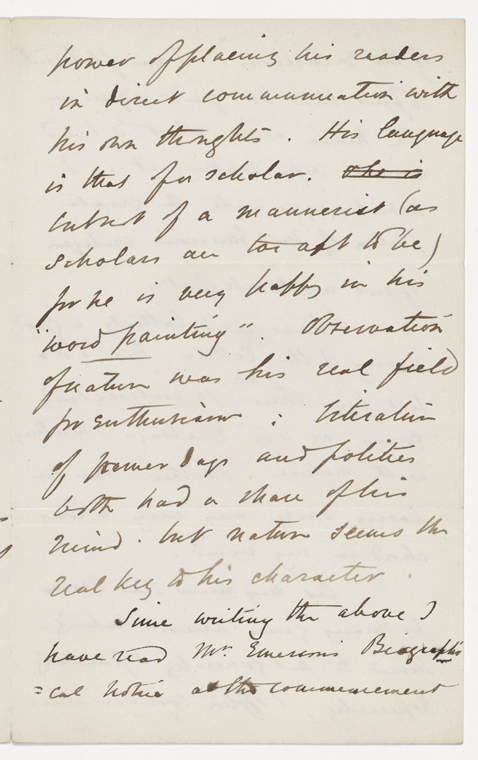 power of placing his readers
in direct communication with
his own thoughts. His language
is that of a scholar. & he is
but not of a mannerist (as
scholars are too apt to be)
for he is very happy in his
"word painting". Observation
of nature was his real field
for enthusiasm; literature
of former days and politics
both had a share of his
mind. but nature seems the
real key to his character.
Since writing the above I
have read Mr. Emerson's Biographi
=cal notice at the commencement